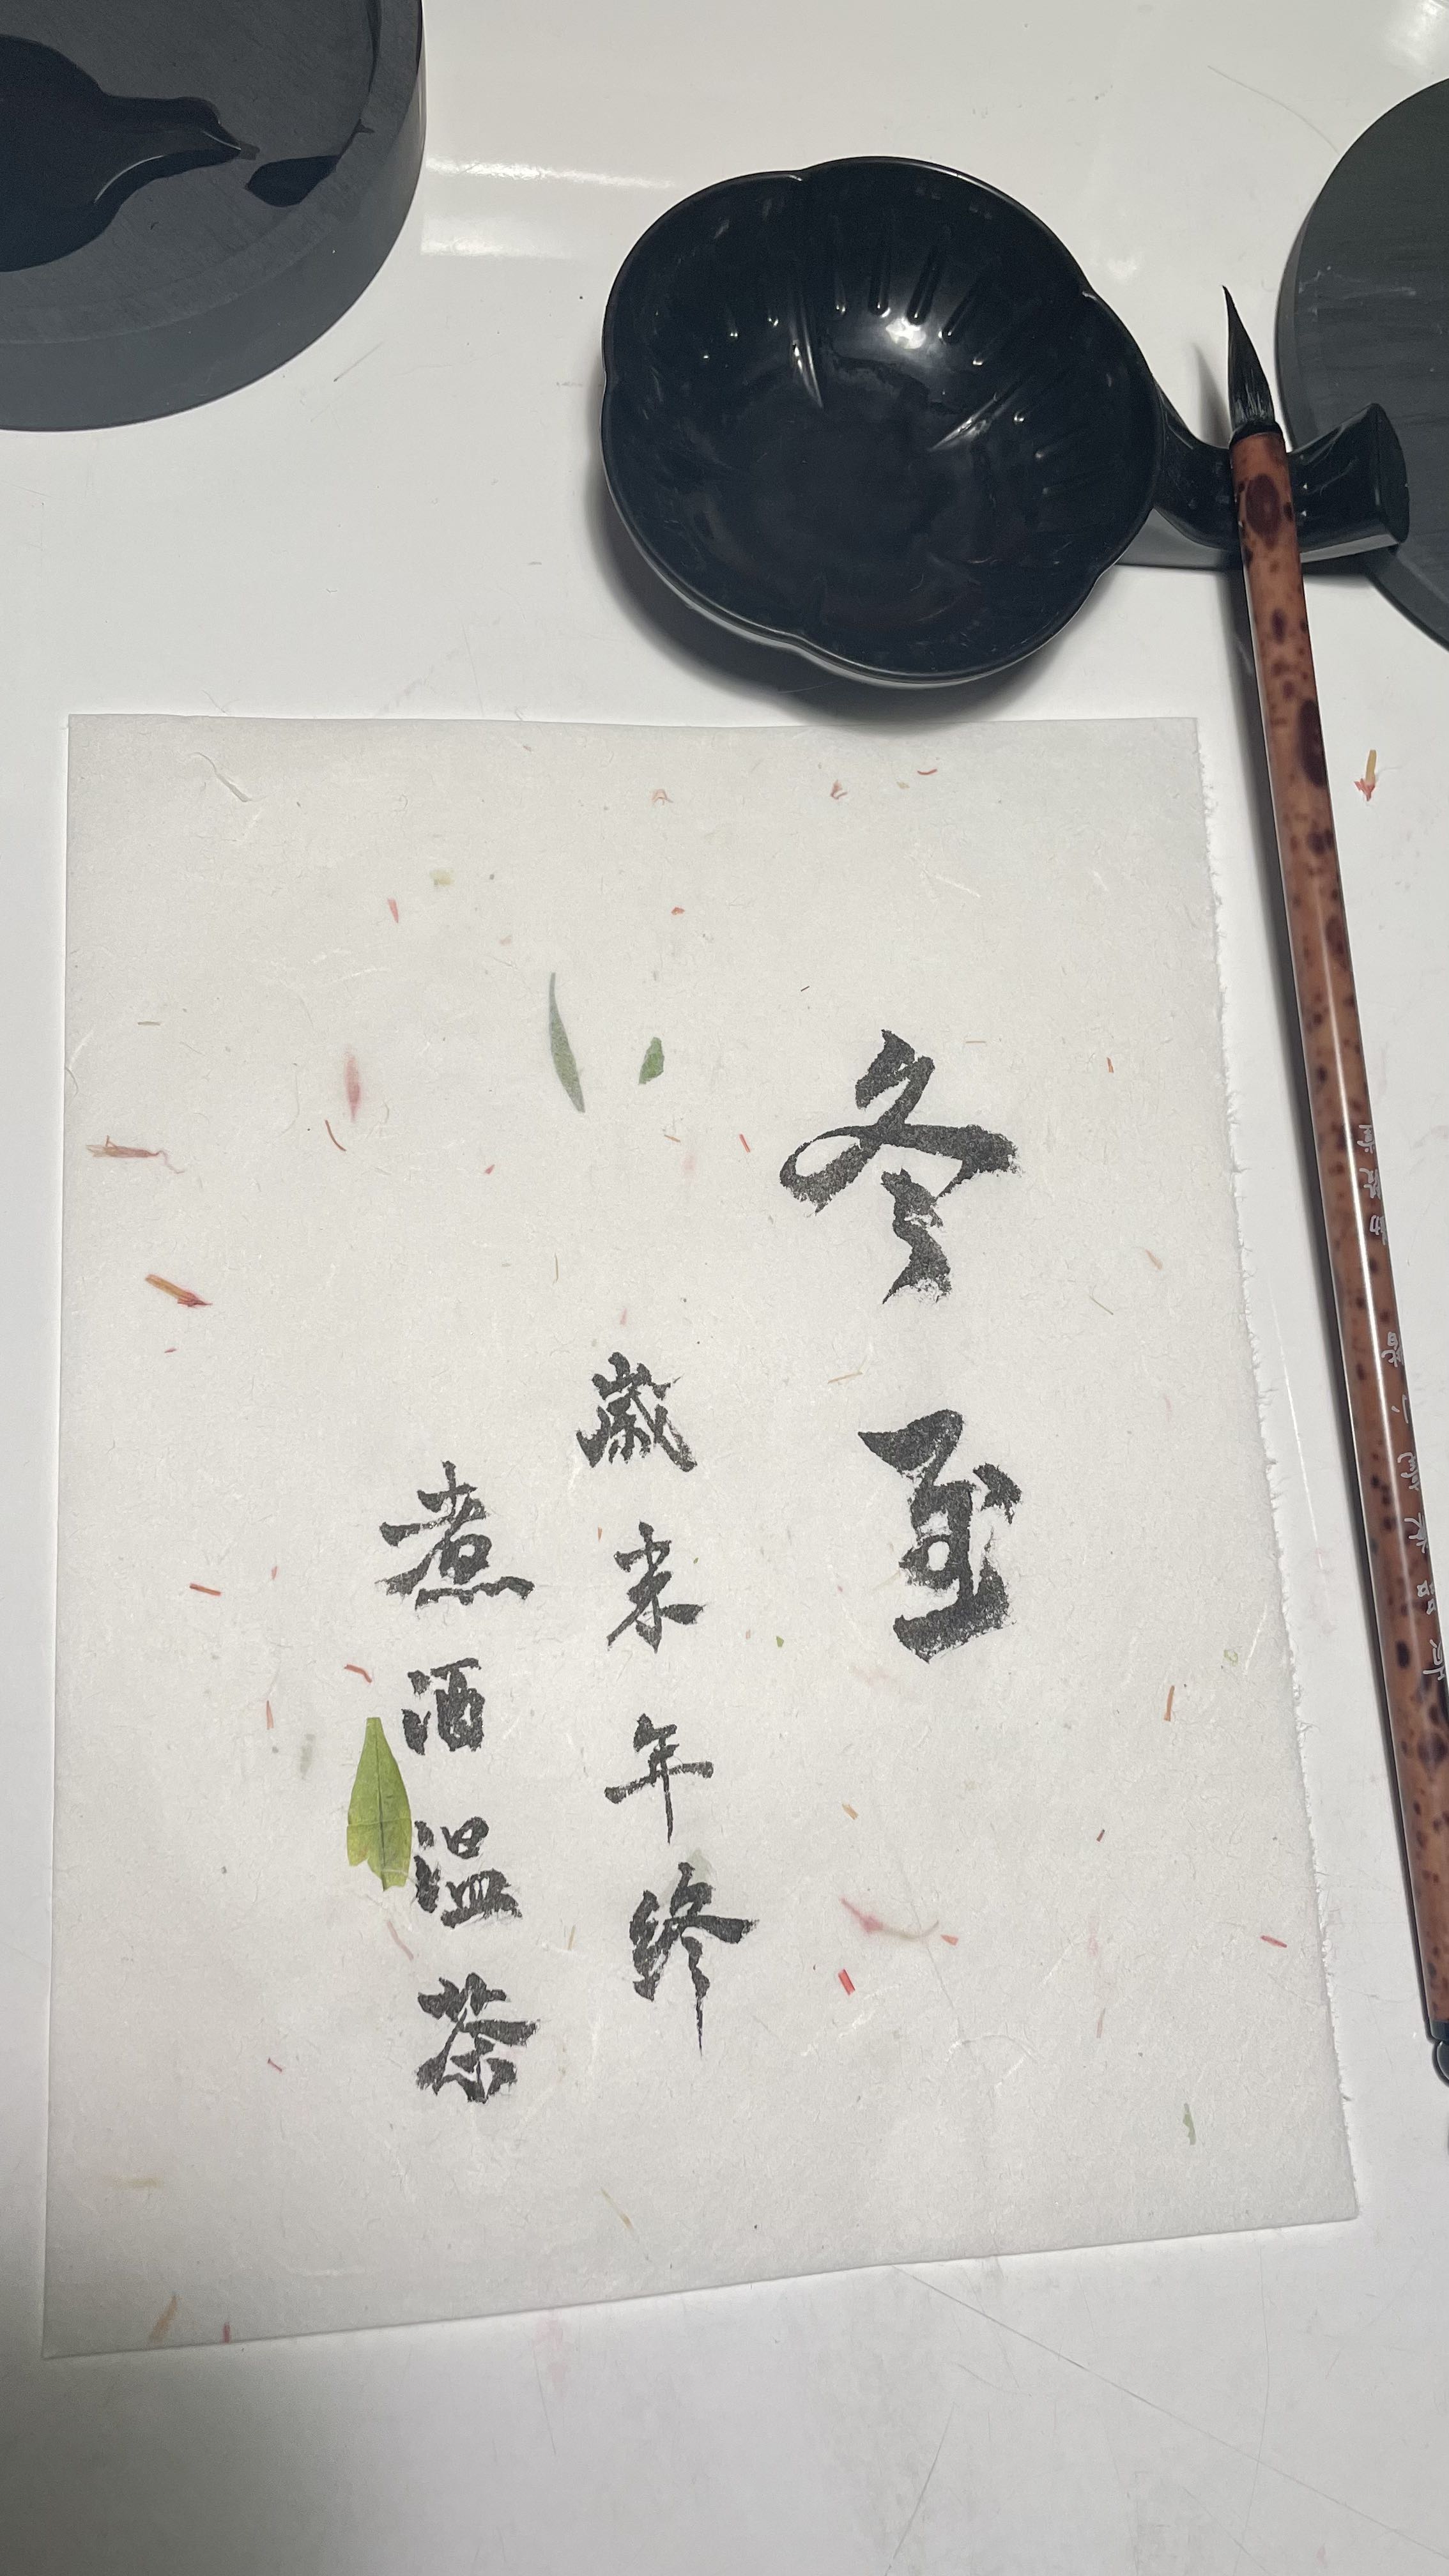 冬至
歲末年終
煮酒温茶